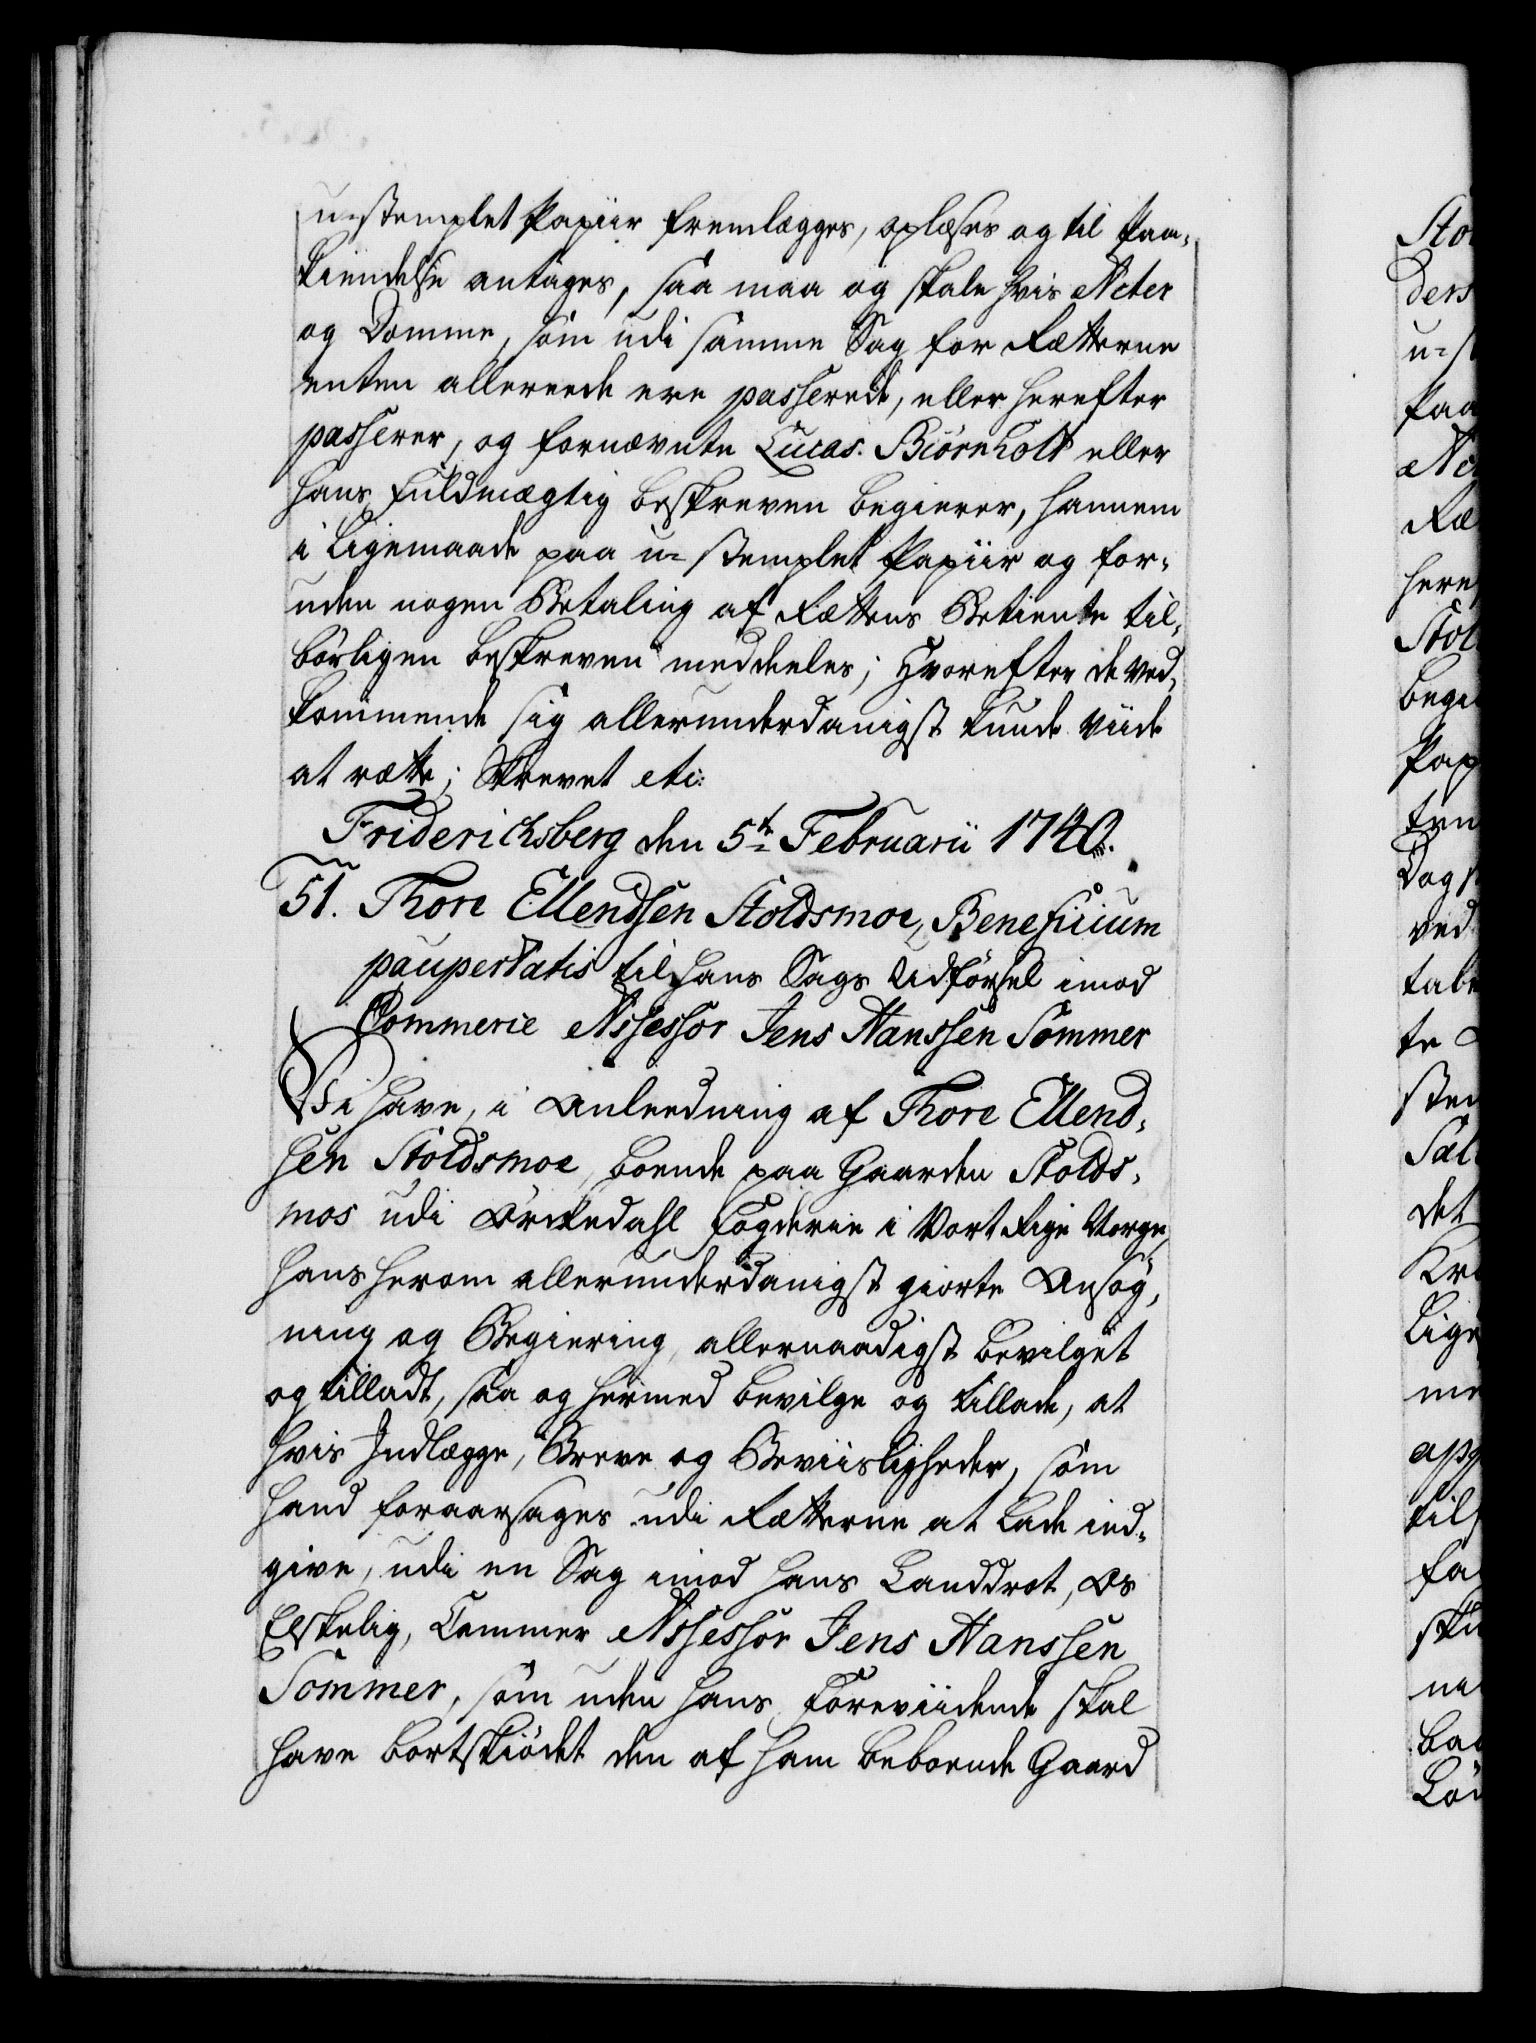 u-stemplet Papiir fremlægges, oplæses og til Paa-
kiendelse antages, saa maa og skale hvis Acter
og Domme, som udi samme Sag for Rætterne
enten allereede ere passerede, eller herefter
passerer, og fornævnte Lucas Biörnholt eller
hans Fuldmægtig beskreven begierer, hannem
i ligemaade paa u-stemplet Papiir og for-
uden nogen Betaling af Rættens Betiente til-
börligen beskreven meddeeles; Hvorefter de ved-
kommende sig allerunderdanigst kunde viide
at rætte; Skrevet etc:
Friderichsberg den 5te Februarii 1740.
51. Thore Ellendsen Stoldsmoe, Beneficium
paupertatis til hans Sags Udförsel imod
Commerce Assessor Jens Hanssen Sommer
Vi have, i Anleedning af Thore Ellend-
sen Stoldsmoe, boende paa Gaarden Stolds-
mos udi Orckedahl Fogderie i Vort Rige Norge,
hans herom allerunderdanigst giorte Ansög-
ning og Begiering, allernaadigst bevilget
og tilladt, saa og hermed bevilge og tillade, at
hvis Indlægge, Breve og Beviisligheder, som
hand foraarsages udi Rætterne at lade ind-
give, udi en Sag imod hans Landdrot, Os
Elskelig, Commer Assessor Jens Hanssen
Sommer, som uden hans Foreviidende skal
have bortskiödet den af ham beboende Gaard
Sto
ders
u-s
Paa
Act
Ræ
here
Stol
begi
Pap
ten
Dog
ved
tale
te
stem
Sæl
det
Kr
lige
me
til
fa
ski
ba